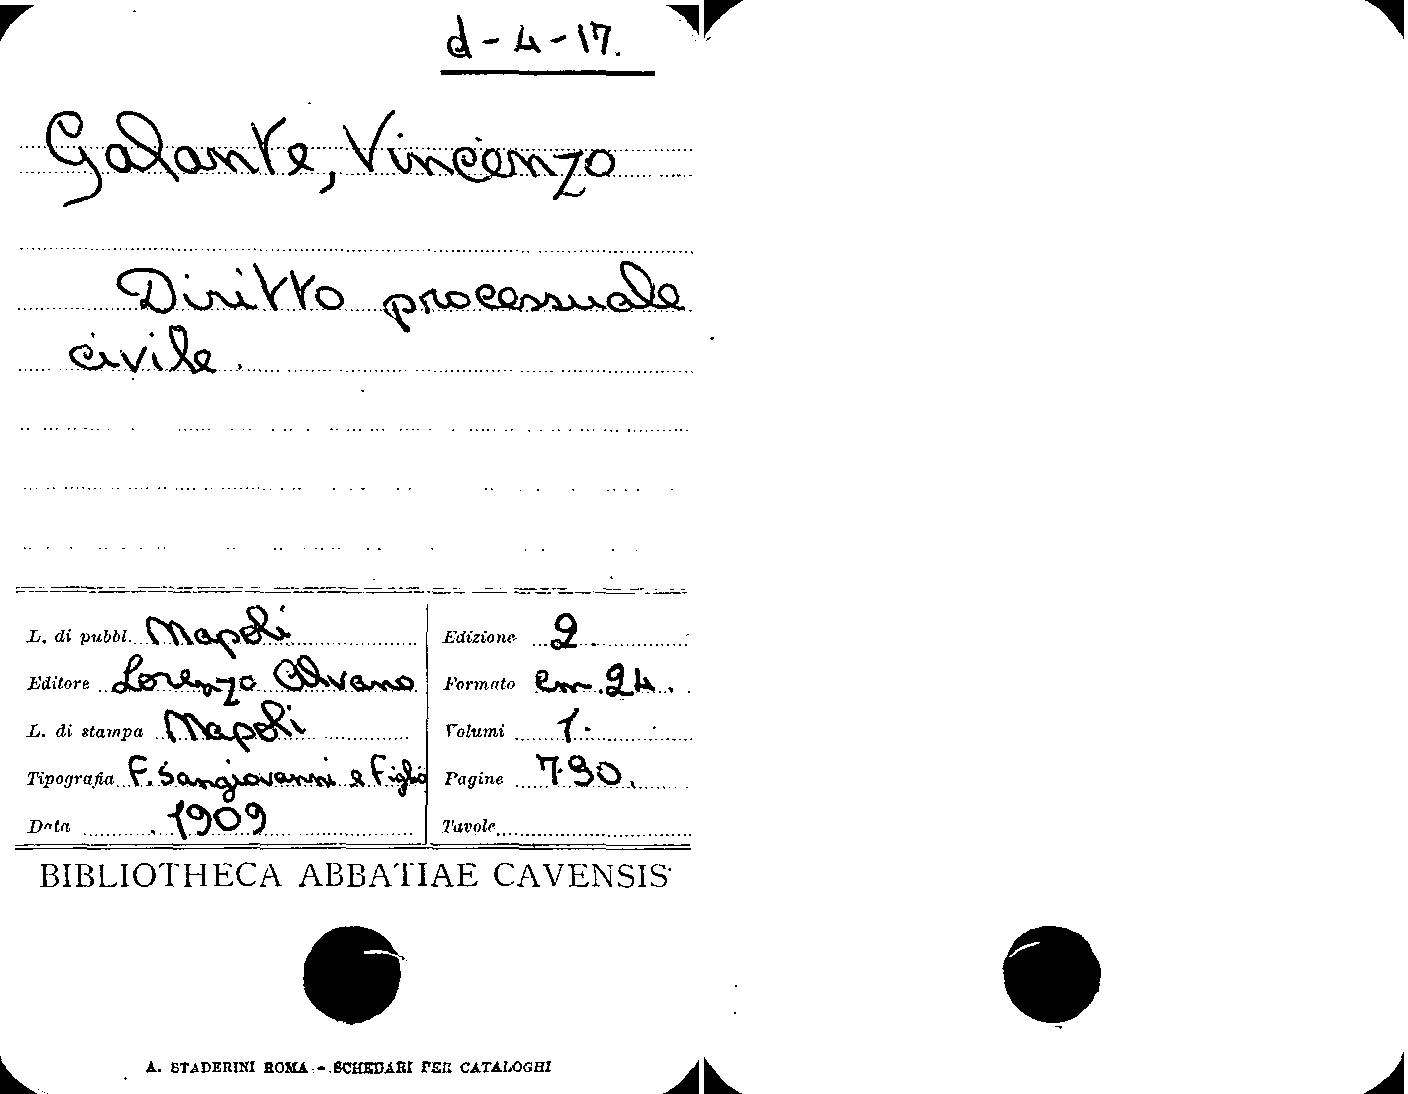 d-4-17.
Galante, Vincenzo
Diritto processuale
civile.
L. di pubbl. Napoli
Editore Lorenzo Alvano
L. di stampa Napoli
Tipografia F. Sangiovanni e Figlio
Data 1909
Edizione 2.
Formato cm. 24.
Volumi 1.
Pagine 790.
Tavole
BIBLIOTHECA ABBATIAE CAVENSIS
A. STADERINI ROMA - SCHEDARI PER CATALOGHI